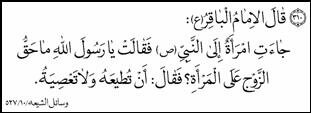 ﴿٣١٠﴾ قَالَ الْاِمَامُ الْبَاقِرُ(ع):
جَاءَتِ امْرَأَةٌ اِلَى النَّبِيِّ(ص) فَقَالَتْ يَا رَسُولَ اللّٰهِ مَا حَقُّ
الزَّوْجِ عَلَى الْمَرْأَةِ؟ فَقَالَ: اَنْ تُطيعَهُ وَلَا تَعْصِيَهُ.
وسائل الشيعه/١٠/٥٢٧